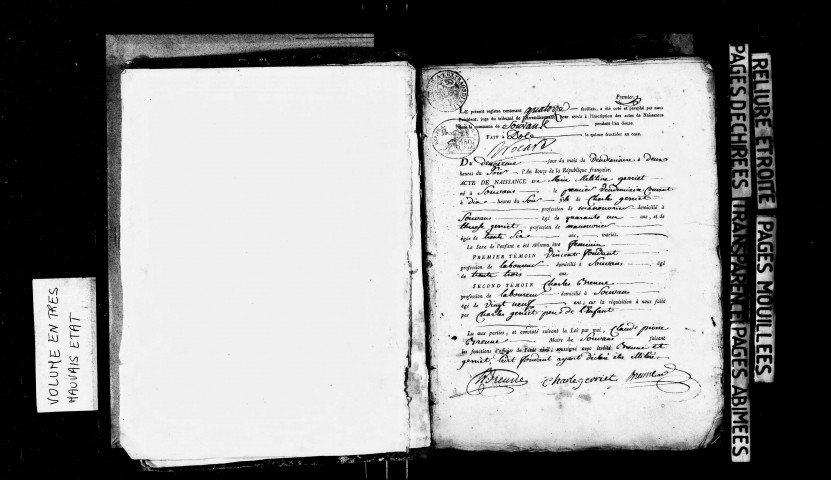 VOLUME EN TRES
MAUVAIS ETAT
Premier
LE présent registre contenant quatorze feuillets, a été coté et paraphé par nous
Président, juge du tribunal de l'arrondissement, pour servir à l'inscription des actes de Naissance
dans la commune de Souvans pendant l'an douze.
FAIT à Dole le quinze fructidor an onze.
DU deuxieme jour du mois de vendemiaire à deux
heures du Soir l'An douze de la République française.
ACTE DE NAISSANCE de Marie geniet
né à Souvans le premier vendemiaire Courant
à dix heures du Soir fille de Charles geniet
profession de manouvrier domicilié à
Souvans âgé de quarante un ans, et de
therese geniet profession de manouvrier
âgée de trente Six ans, mariés.
Le Sexe de l'enfant a été reconnu être feminin
PREMIER TÉMOIN Vincent flondant
profession de laboureur domicilié à Souvans âgé
de trente trois ans.
SECOND TÉMOIN Charles Breune
profession de laboureur domicilié à Souvans
âgé de vingt neuf ans; sur la réquisition à nous faite
par Charles geniet pere de l'Enfant
Lu aux parties, et constaté suivant la Loi par moi, Claude pierre
Breune Maire de Souvans faisant
les fonctions d'officier de l'état civil, soussigné avec ledit Breune et
geniet, ledit flondant ayant déclaré être illitéré
Breune Charle geniet
RELIURE ETROITE PAGES MOUILLEES
PAGES DECHIREES TRANSPARENCE PAGES ABIMEES